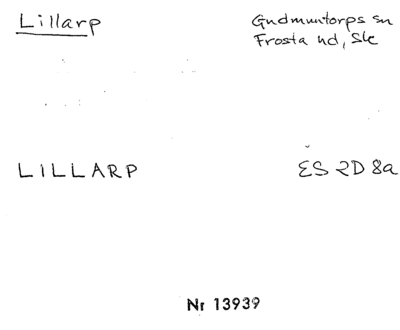 Lillarp
Gudmuntorps sn
Frosta hd, Sk
LILLARP
ES 2D 8a
Nr 13939